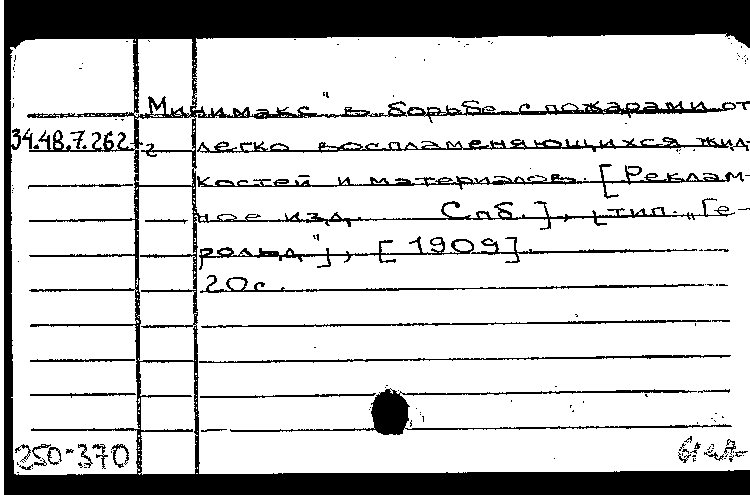 Минимакс" в борьбе с пожарами от
34.48.7.262 легко воспламеняющихся жид-
2
костей и материалов. [Реклам-
ное изд. Спб.], [тип. „Ге-
рольд"], [1909].
20с.
250-370